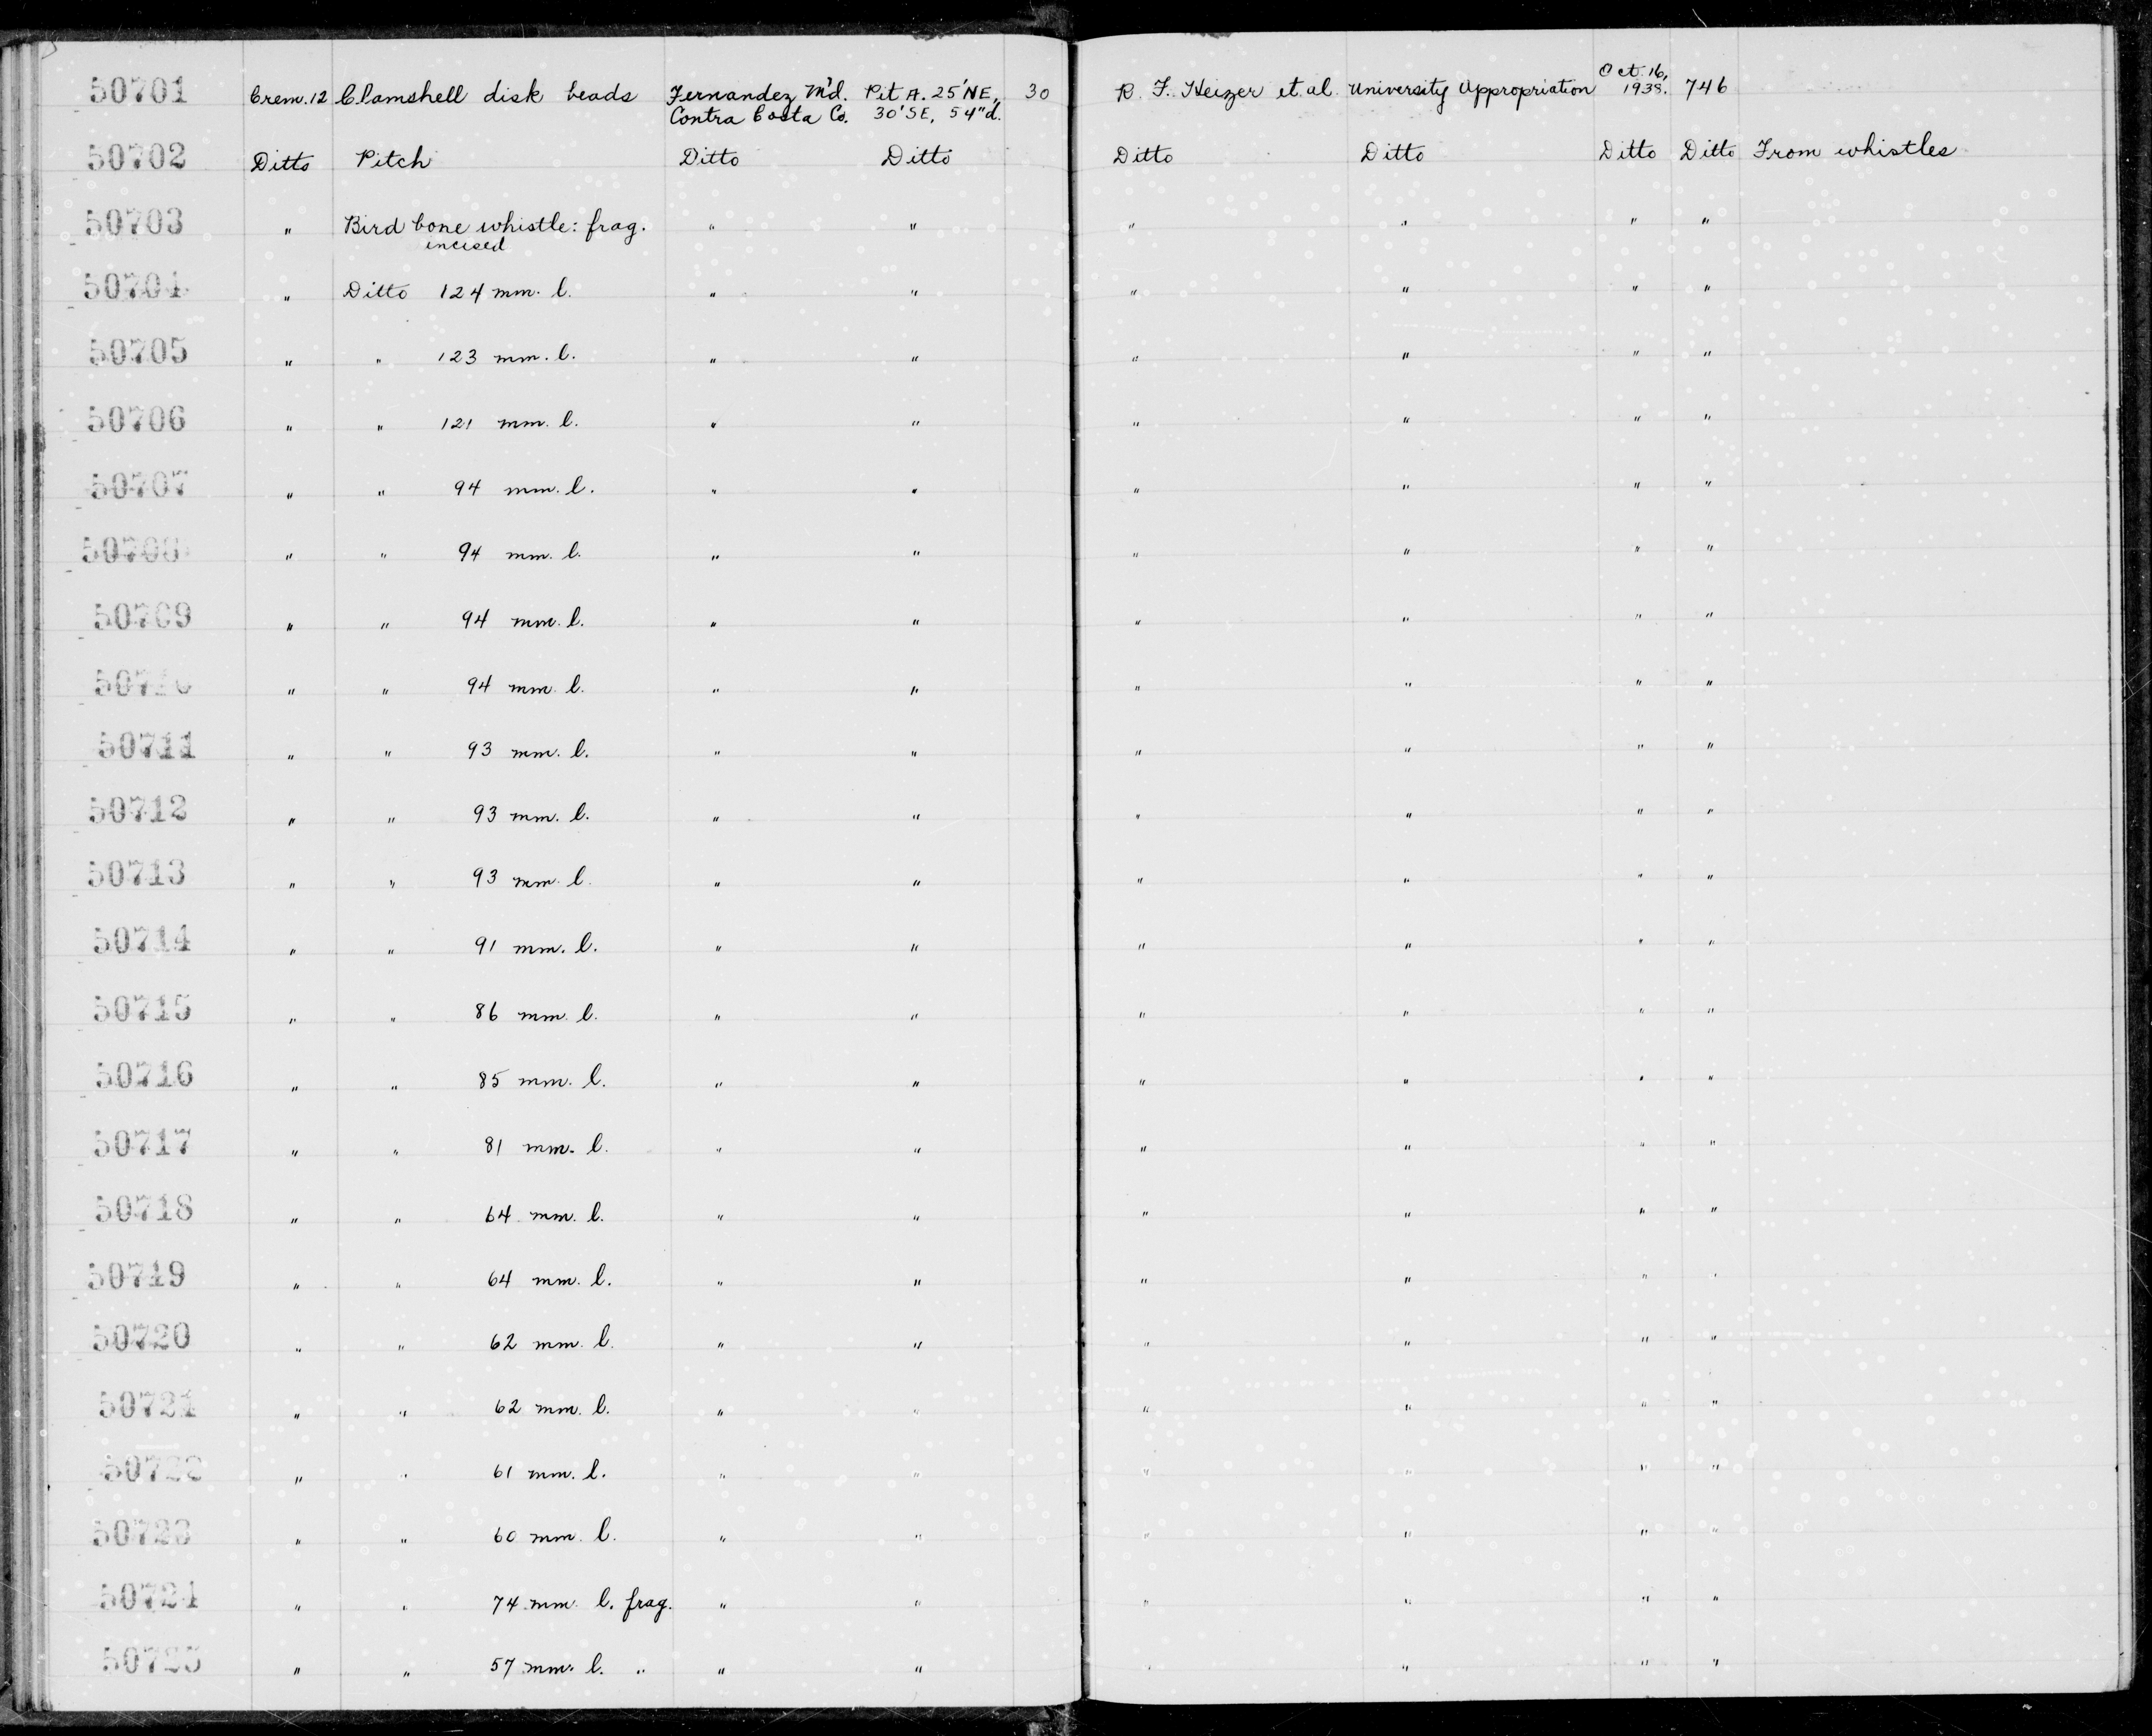 50701 Crem. 12 Clamshell disk beads Fernandez M'd. Pit A. 25' NE, 30 R. F. Heizer et al. University Appropriation Oct. 16, 1938. 746
Contra Costa Co. 30' SE, 54" d.
50702 Ditto Pitch Ditto Ditto Ditto Ditto Ditto Ditto From whistles
50703 " Bird bone whistle: frag. " " " " " "
incised
50704 " Ditto 124 mm. l. " " " " " "
50705 " " 123 mm. l. " " " " " "
50706 " " 121 mm. l. " " " " " "
50707 " " 94 mm. l. " " " " " "
50708 " " 94 mm. l. " " " " " "
50709 " " 94 mm. l. " " " " " "
50710 " " 94 mm. l. " " " " " "
50711 " " 93 mm. l. " " " " " "
50712 " " 93 mm. l. " " " " " "
50713 " " 93 mm. l. " " " " " "
50714 " " 91 mm. l. " " " " " "
50715 " " 86 mm. l. " " " " " "
50716 " " 85 mm. l. " " " " " "
50717 " " 81 mm. l. " " " " " "
50718 " " 64 mm. l. " " " " " "
50719 " " 64 mm. l. " " " " " "
50720 " " 62 mm. l. " " " " " "
50721 " " 62 mm. l. " " " " " "
50722 " " 61 mm. l. " " " " " "
50723 " " 60 mm. l. " " " " " "
50724 " " 74 mm. l. frag. " " " " " "
50725 " " 57 mm. l. " " " " " " "